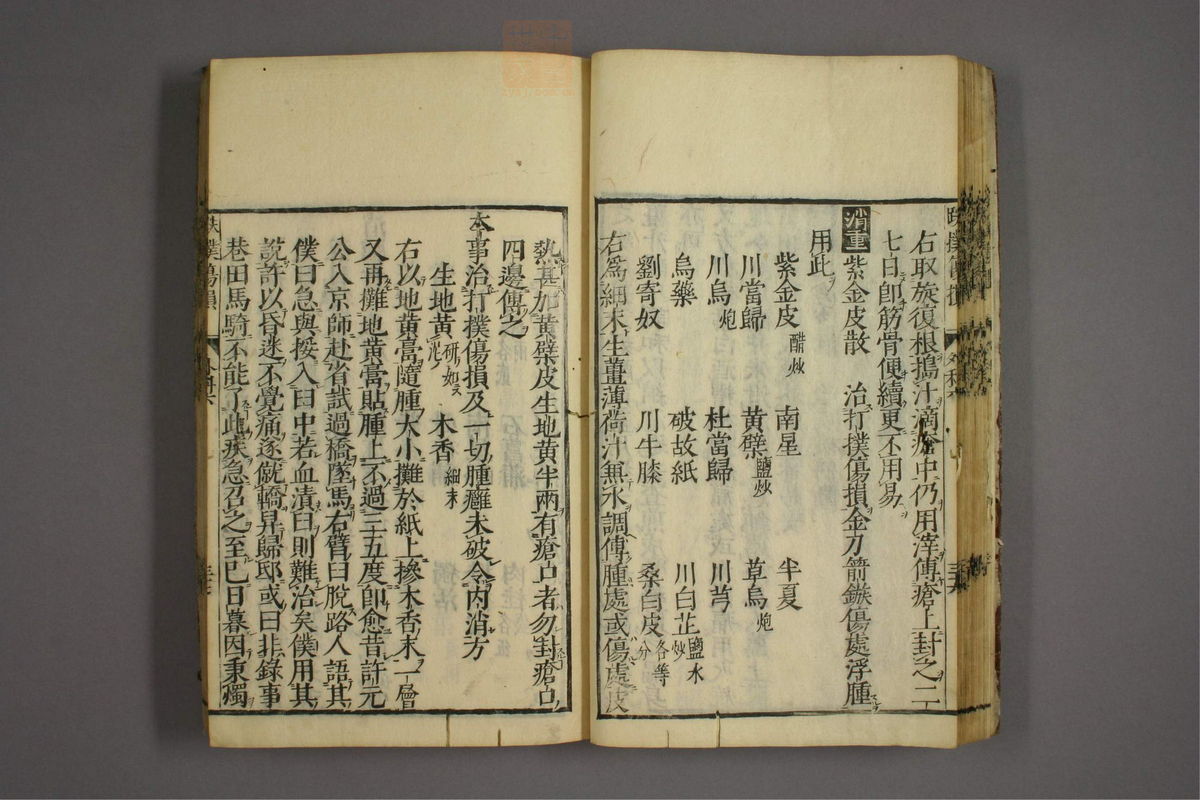 右取旋復根搗汁滴瘡中仍用滓傅瘡上封之二
七日即筋骨便續更不用易
消重 紫金皮散 治打撲傷損金刀箭鏃傷處浮腫
用此
紫金皮 醋炒 南星 半夏
川當歸 黃蘗 鹽炒 草烏 炮
川烏 炮 杜當歸 川芎
烏藥 破故紙 川白芷 鹽水炒
劉寄奴 川牛膝 桑白皮 各等分
右為細末生薑薄荷汁無水調傅腫處或傷處皮
熱甚加黃蘗皮生地黃半兩有瘡口者勿封瘡口
四邊傅之
本事治打撲傷損及一切腫癰未破令內消方
生地黃 研如 木香 細末
右以地黃膏隨腫大小攤於紙上摻木香末一層
又再攤地黃膏貼腫上不過三五度即愈昔許元
公入京師赴省試過橋墜馬右臂臼脫路人語其
僕曰急與挼入臼中若血漬臼則難治矣僕用其
說許以昏迷不覺痛遂僦轎舁歸邸或曰非錄事
巷田馬騎不能了此疾急召之至已日暮因秉燭